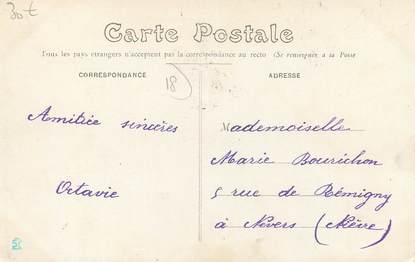 30€
Carte Postale
Tous les pays étrangers n'acceptent pas la correspondance au recto (Se renseigner à la Poste
CORRESPONDANCE
18
ADRESSE
Amitiée sincères
Octavie
Mademoiselle
Marie Bourichon
5 rue de Rémigny
à Nevers (Nièvre)